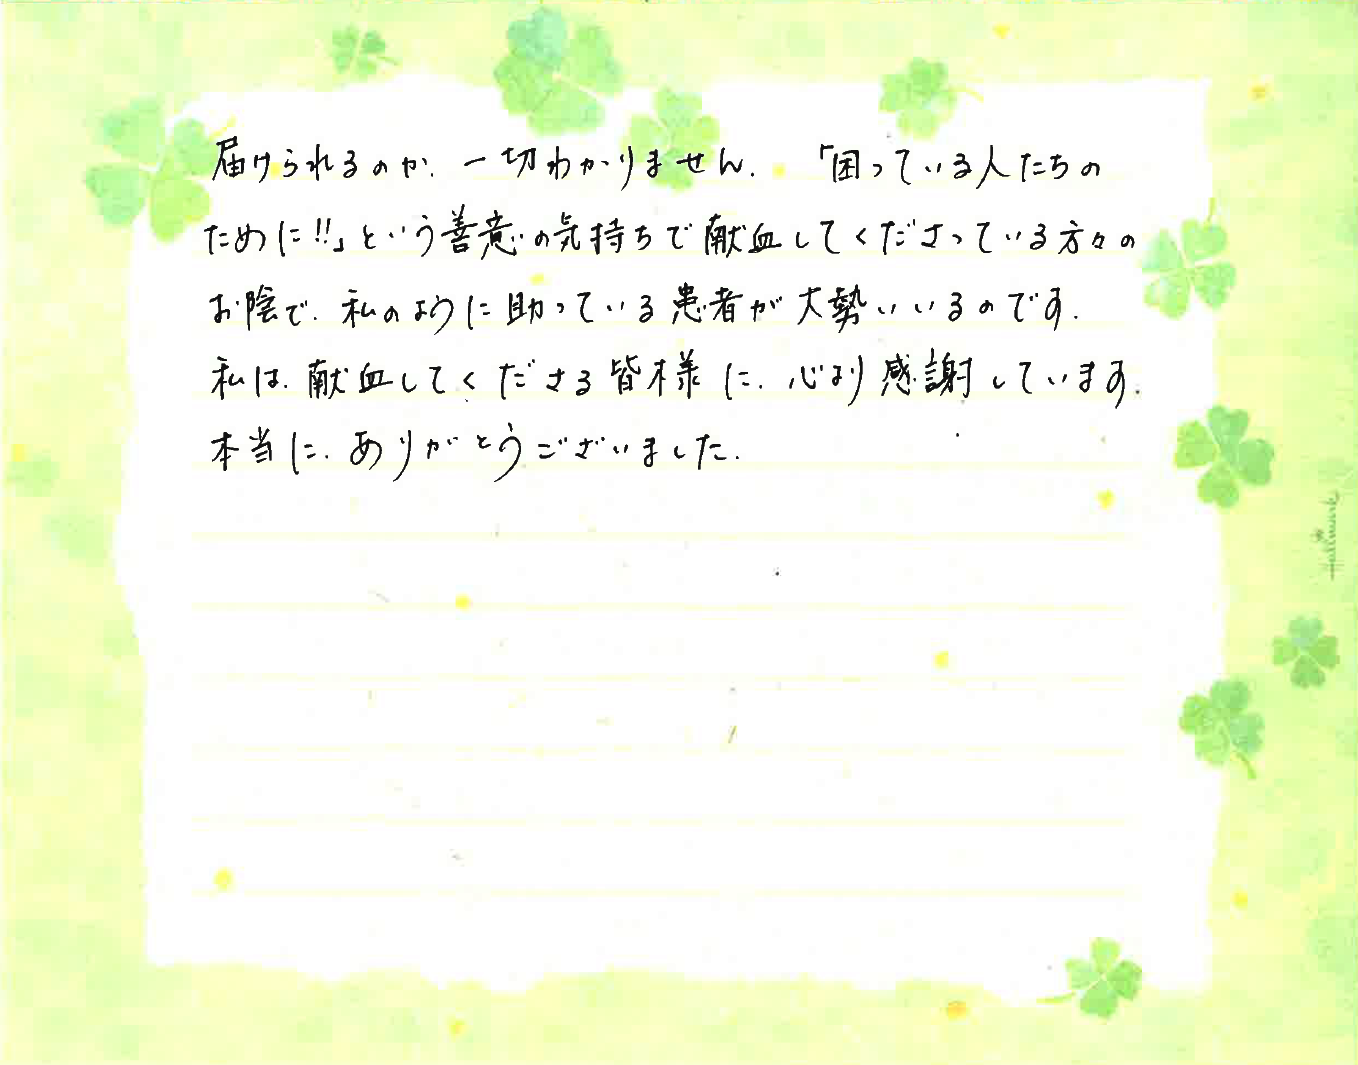 届けられるのか、一切わかりません。「困っている人たちの
ために!!」という善意の気持ちで献血してくださっている方々の
お陰で、私のように助っている患者が大勢いいるのです。
私は、献血してくださる皆様に、心より感謝しています。
本当に、ありがとうございました。
Hallmark